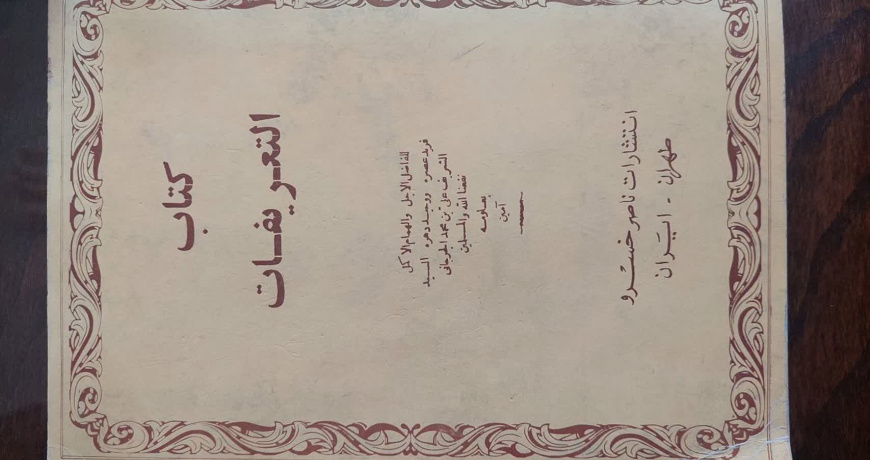 كتاب
التعريفات
للفاضل الاجل والهمام الاكمل
فريد عصره ووحيد دهره السيد
الشريف على بن محمد الجرجانى
نفعنا الله والمسلمين
بعلومه
آمين
انتشارات ناصر خسرو
طهران - ايران